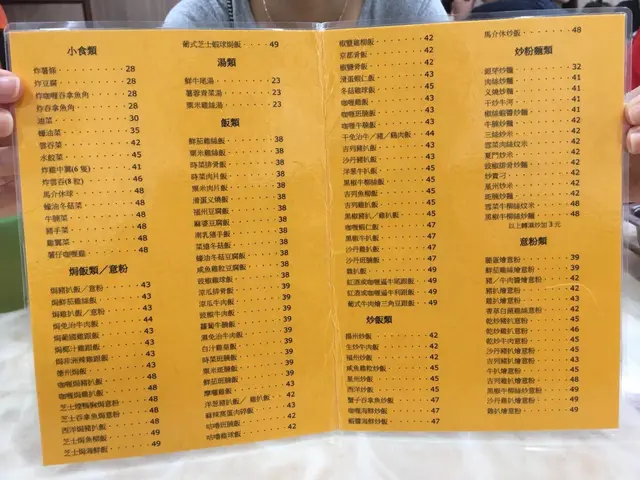 小食類
炸薯條 28
炸豆腐 28
炸咖喱吞拿魚角 28
炸吞拿魚角 28
油菜 30
蠔油菜 35
雲吞菜 42
水餃菜 45
炸雞中翼(6隻) 41
炸雲吞(8粒) 46
馬介休球 48
蠔油冬菇菜 48
牛腩菜 48
豬手菜 48
雞翼菜 48
薯仔咖喱雞 48
焗飯類／意粉
焗豬扒飯／意粉 43
焗鮮茄雞絲飯 43
焗雞扒飯／意粉 43
焗免治牛肉飯 44
焗葡國雞跟飯 43
焗椰汁雞跟飯 43
焗非洲辣雞跟飯 43
德州焗飯 43
咖喱焗豬扒飯 48
咖喱焗雞扒飯 48
芝士煙鴨胸焗意粉 48
芝士吞拿魚焗意粉 48
西洋焗豬扒飯 48
芝士焗魚柳飯 49
芝士焗海鮮飯 49
葡式芝士蝦球焗飯 49
湯類
鮮牛尾湯 23
薯蓉滑菜湯 23
粟米雞絲湯 23
飯類
鮮茄雞絲飯 38
粟米雞絲飯 38
時菜排骨飯 38
時菜肉片飯 38
粟米肉片飯 38
滑蛋叉燒飯 38
福州豆腐飯 38
麻婆豆腐飯 38
南乳豬手飯 38
菜遠冬菇飯 38
蠔油冬菇豆腐飯 38
咸魚雞粒豆腐飯 38
豉椒雞球飯 38
涼瓜排骨飯 39
涼瓜牛肉飯 39
豉椒牛肉飯 39
蘿蔔牛腩飯 39
滑免治牛肉飯 39
白汁雞皇飯 39
時菜斑腩飯 39
粟米斑腩飯 39
鮮茄斑腩飯 39
摩囉雞飯 43
洋蔥豬扒／雞扒飯 42
麻辣茄蛋肉碎飯 43
咕嚕斑腩飯 42
咕嚕雞球飯 42
椒鹽雞柳飯 42
京都骨飯 42
椒鹽骨飯 42
滑蛋蝦仁飯 43
冬菇雞球飯 45
咖喱雞飯 43
咖喱斑腩飯 43
咖喱牛腩飯 43
干免治牛／豬／雞肉飯 44
吉列豬扒飯 43
沙丹豬扒飯 43
洋蔥牛扒飯 45
黑椒牛柳絲飯 45
星州炒飯 45
吉列魚柳飯 45
吉列雞扒飯 45
黑椒豬扒／雞扒飯 45
咖喱蝦仁飯 47
黑椒牛扒飯 47
沙丹雞扒飯 47
沙丹斑腩飯 47
雞扒飯 49
紅酒或咖喱逼牛尾跟飯 49
紅酒或咖喱逼牛利跟飯 49
葡式牛肉燴三角豆跟飯 49
炒飯類
揚州炒飯 42
生炒牛肉飯 42
福州炒飯 42
咸魚雞粒炒飯 45
星州炒飯 45
西洋炒飯 45
蟹子吞拿魚炒飯 47
咖喱海鮮炒飯 47
蝦醬海鮮炒飯 47
馬介休炒飯 48
炒粉麵類
銀芽炒麵 32
肉絲炒麵 41
叉燒炒麵 41
干炒牛河 41
椒絲蝦醬炒麵 41
牛腩炒麵 42
三絲炒米 42
雪菜肉絲炆米 42
廈門炒米 42
豉椒排骨炒麵 42
炒貴刁 42
星州炒米 42
斑腩炒麵 42
雪菜牛柳絲炆米 48
黑椒牛柳絲炒麵 48
以上轉濕炒加3元
意粉類
腿蛋意粉 39
鮮茄雞絲意粉 39
豬／牛肉醬意粉 42
豬扒意粉 42
雞扒意粉 43
香草白菌雞絲意粉 42
乾炒豬扒意粉 45
乾炒雞扒意粉 46
乾炒牛肉意粉 45
沙丹豬扒意粉 45
吉列豬扒意粉 43
牛扒意粉 45
吉列雞扒意粉 47
黑椒牛柳絲意粉 48
吉列雞扒意粉 49
沙丹雞扒意粉 49
雞扒意粉 49